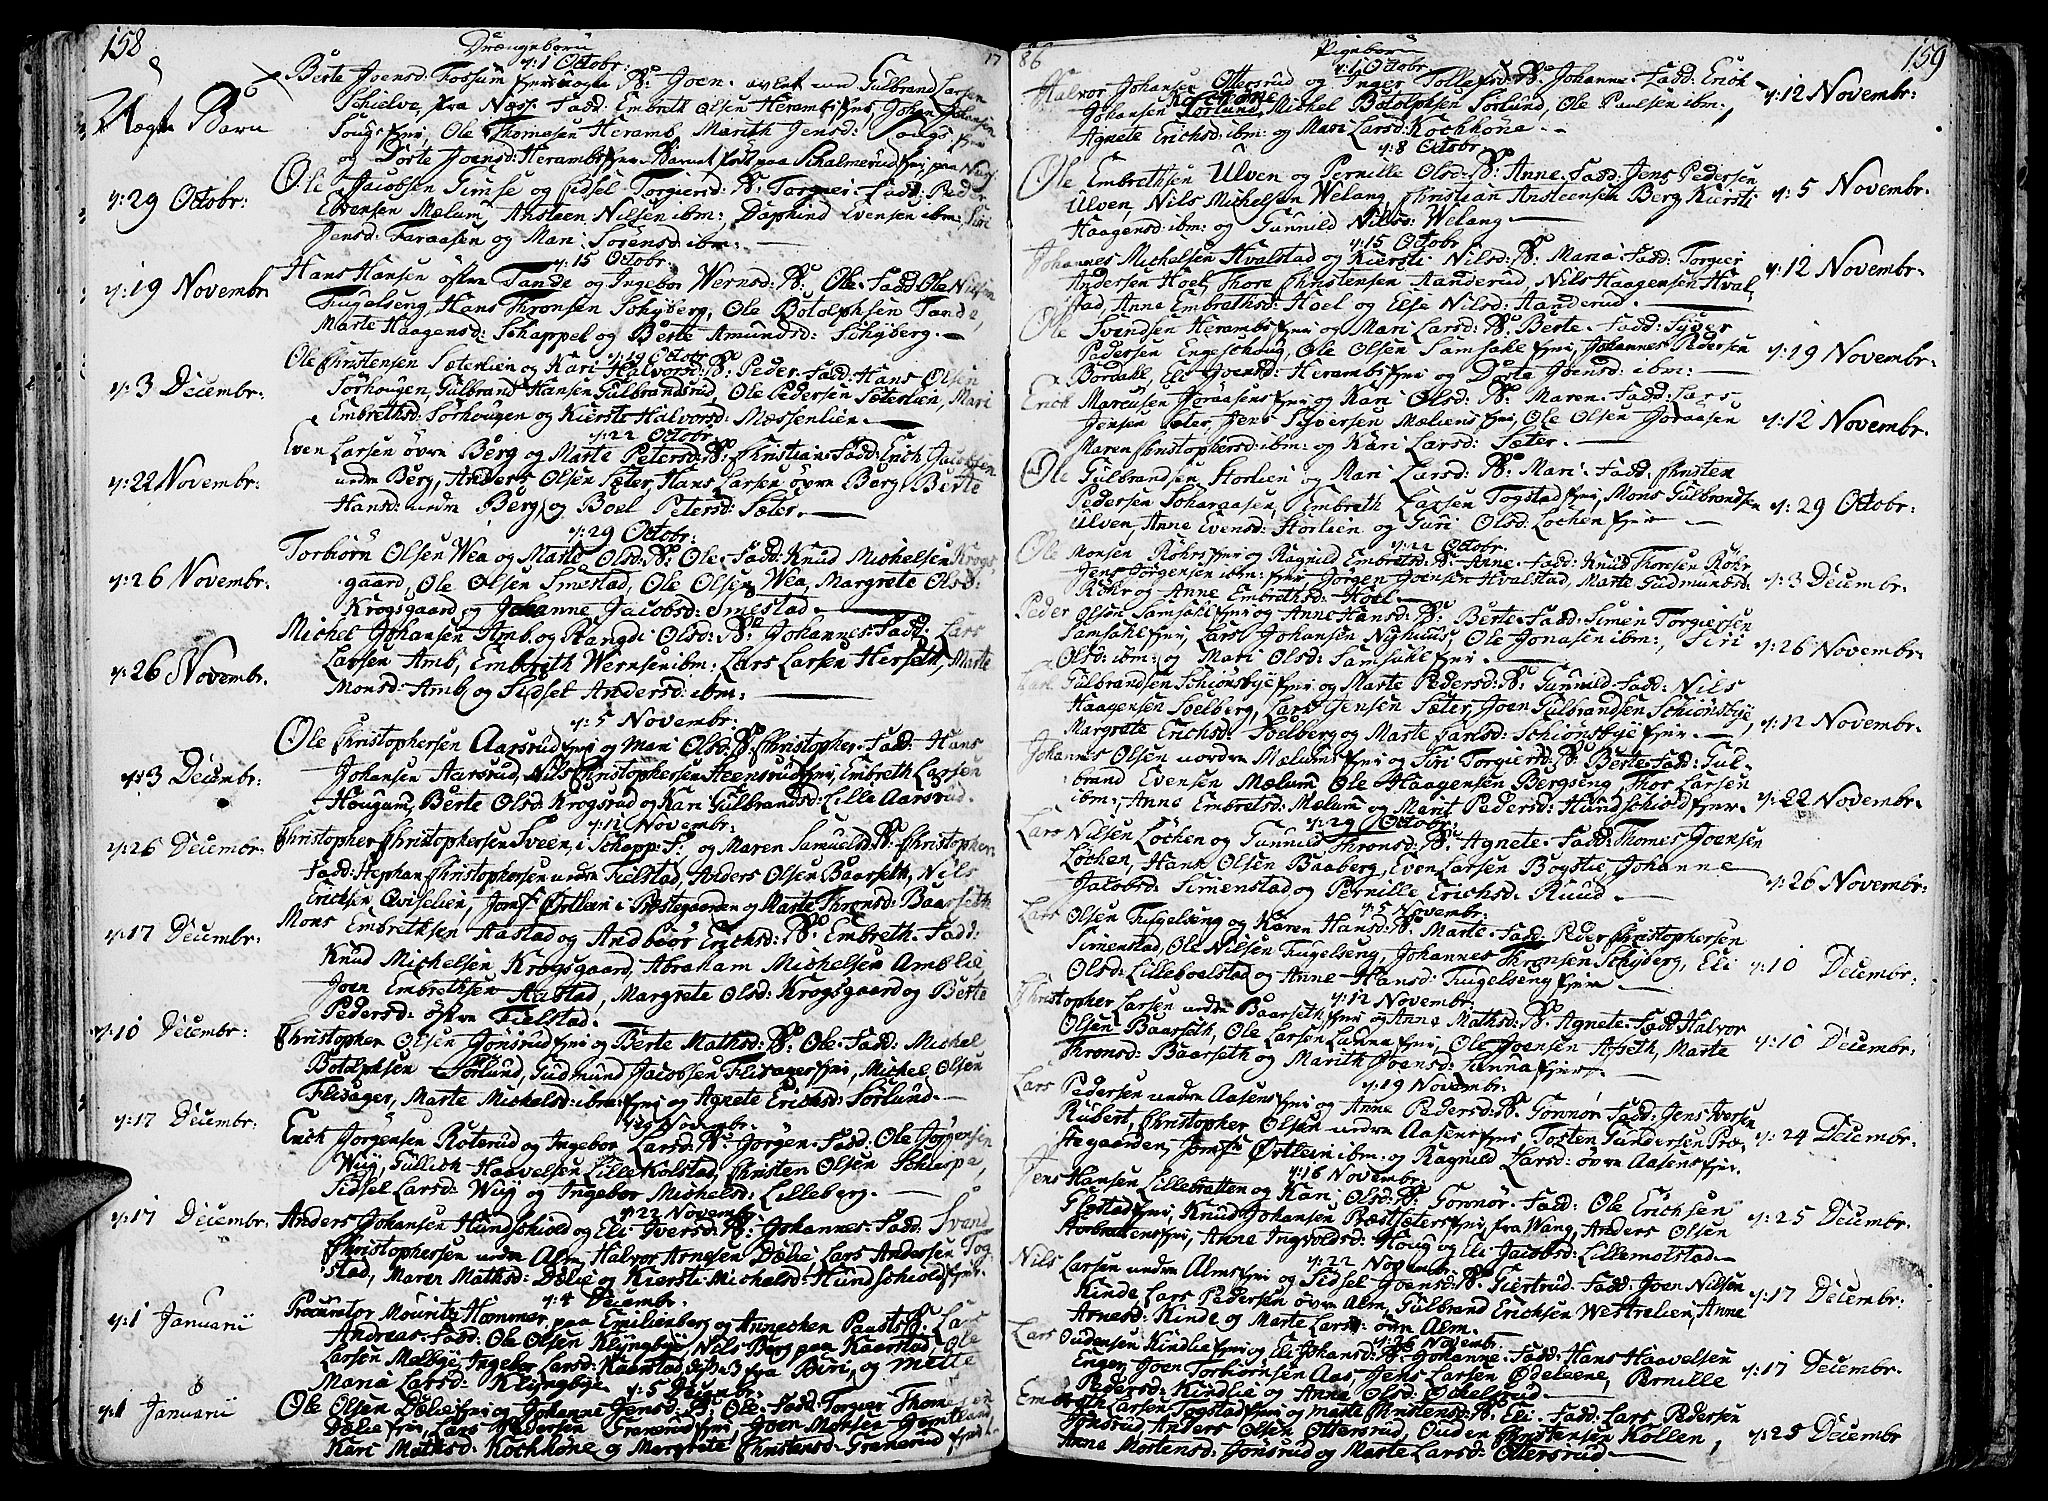 158
Drængebørn 17
d: 1 Octobr:
Uægte Barn
Berte Joensd: Fossum B: Joen avlet med Gulbrand Larsen
Schielve, fra Næss. Fadd: Embrett Olsen Herambs Johan Johansen
Ole Thomasen Heramb, Marith Jensd:
og Dorte Joensd: Herambs
d: 29 Octobr:
Ole Jacobsen Gimse og Sidsel Torgiersd: B: Torgier Fadd: Peder
Evensen Mælum, Ansteen Nilsen ibm: Daphind Evensen ibm: Siri
Jensd: Faraasen og Mari Sørensd: ibm:
d: 15 Octobr:
d: 19 Novembr:
Hans Hansen østre Tande og Ingebor Wernsd: B: Ole Fadd: Ole Nielsen
Fugelseng, Hans Thronsen Schyberg, Ole Botolphsen Tande,
Marte Haagensd: Schappel og Berte Amundsd: Schyberg.
d: 19 Octobr:
d: 3 Decembr:
Ole Christensen Sæterlien og Kari Halvorsd: B: Peder Fadd: Hans Olsen
Torhougen, Gulbrand Hansen Gulbrandsrud, Ole Pedersen Sæterlien, Mari
Embrethsd: Torhougen og Kierste Halvorsd: Mæssenlien
d: 22 Octobr:
d: 22 Novembr:
Even Larsen øvre Berg og Marte Petersd: B: Christian Fadd: Erich Jacobsen
undre Berg, Anders Olsen Sæter, Hans Larsen øvre Berg Berte
Hansd: undre Berg og Boel Petersd: Sæter.
d: 29 Octobr:
d: 26 Novembr:
Torbiörn Olsen Wea og Marte Olsd: B: Ole Fadd: Knud Michelsen Krogs
gaard, Ole Olsen Simestad, Ole Olsen Wea, Margrete Olsd:
Krogsgaard og Johanne Jacobsd: Simestad.
d: 26 Novembr.
Michel Johansen Amb og Rangdi Olsd: B: Johannes Fadd: Lars
Larsen Amb, Embreth Wernsen ibm: Lars Larsen Herseth, Marte
Monsd: Amb og Sidsel Andersd: ibm:
d: 5 Novembr:
d: 3 Decembr:
Ole Christophersen Aarsrud og Mari Olsd: B: Christopher Fadd: Hans
Johansen Aarsrud, Nils Christophersen Embreth Larsen
Hougum, Berte Olsd: Krogsrud og Kari Gulbrandsd: Lille Aarsrud.
d: 12 Novembr:
d: 26 Decembr:
Christopher Christophersen Sveen i Schapp: S: og Maren Samuelsd: B: Christopher
Fadd: Stephan Christophersen undre Fielstad, Anders Olsen Baarseth, Nils
Erichsen Qviselien, Ørtlein i Præstegaarden og Marte Thronsd: Baarseth
d: 17 Decembr:
Mons Embrethsen Aastad og Andbiör Erichsd: B: Embreth Fadd:
Knud Michelsen Krogsgaard, Abraham Michelsen Amblie,
Joen Embrethsen Aastad, Margrete Olsd: Krogsgaard og Berte
Pedersd: østre Fielstad.
d: 10 Decembr:
Christopher Olsen Jonsrud og Berte Mathsd: B: Ole Fadd: Michel
Botolphsen Sørlund, Gudmund Jacobsen Flisager, Michel Olsen
Flisager, Marte Michelsd: ibm og Agnete Erichsd: Sørlund.
d: 19 Novembr:
d: 17 Decembr:
Erich Jörgensen Roterud og Ingebor Larsd: B: Jörgen Fadd: Ole Jörgensen
Wüÿ, Gullich Haavelsen Lille Kolstad, Christen Olsen Schiespe,
Sidsel Larsd: Wuÿ og Ingebor Michelsd: Lilleberg.
d: 22 Novembr.
d: 17 Decembr:
Anders Johansen Hundschiold og Eli Iversd: B: Johannes Fadd: Svend
Christophersen undre Alm, Halvor Arnesen Dælie, Lars Andersen Tog
stad, Maren Mathsd: Dælie og Kiersti Michelsd: Hundschiold
d: 4 Decembr:
d: 1 Januarii
Procurator Mouritz Hammer paa Emilienberg og Annechen Paust B: Lars
Andreas Fadd: Ole Olsen Klyngbye, Nils Berg paa Kaarstad, Ole
Larsen Melbye, Ingebor Larsd: Kaarstad fra Biri, og Mette
Maria Larsd: Klyngbye
d: 5 Decembr:
d: 1 Januarii
Ole Olsen Dælie og Johanne Jensd: B: Ole Fadd: Torgier Thomesen
Dælie, Lars Pedersen Granerud, Joen Monsen
Kari Mathsd: Kochhöne og Margrete Christensd: Granerud
86 Pigebørn 159
d: 1 Octobr:
Halvor Johansen Ottersrud og Inger Tollefsd: B: Johanne Fadd: Erich d: 12 Novembr:
Johansen Kochhöne, Michel Botolphsen Sørlund, Ole Paulsen ibm:
Agnete Erichsd: ibm: og Mari Larsd: Kochhöne
d: 8 Octobr:
Ole Embrethsen Ulven og Pernille Olsd: B: Anne Fadd: Jens Pedersen d: 5 Novembr:
Ulven, Nils Michelsen Welang, Christian Ansteensen Berg, Kiersti
Haagensd: ibm: og Gunnild Nilsd: Welang
d: 15 Octobr
Johannes Michelsen Hvalstad og Kiersti Nilsd: B: Maria Fadd: Torgier d: 12 Novembr:
Andersen Hoel, Thore Christensen Aanderud, Nils Haagensen Hval
stad, Anne Embrethsd: Hoel og Else Nilsd: Aanderud.
Ole Svendsen Herambs og Mari Larsd: B: Berte Fadd: Syver
Pedersen Engeschoug, Ole Olsen Samsahl, Johannes Pedersen d: 19 Novembr:
Bordahl, Eli Joensd: Herambs og Dorte Joensd: ibm:
Erich Marcusen Joraasens og Kari Olsd: B: Maren Fadd: Lars
Jonsen Sæter, Jens Syversen Mæliens, Ole Olsen Joraasen d: 12 Novembr.
Maren Christophersd: ibm: og Kari Larsd: Sæter.
Ole Gulbrandsen Storlien og Mari Larsd: B: Mari Fadd: Christen
Pedersen Toharaasen, Embreth Larsen Togstad, Mons Gulbrandsen d: 29 Octobr:
Ulven, Anne Evensd: Storlien og Guri Olsd: Løchen
d: 22 Octobr.
Ole Monsen Röhrs og Ragnild Embretsd: B: Anne Fadd: Knud Thoresen Röhr
Jens Jørgensen ibm: Jørgen Joensen Hvalstad, Marte Gudmundsd: d: 3 Decembr:
Röhr og Anne Embrethsd: Hoel
Peder Olsen Samsahl og Anne Hansd: B: Berte Fadd: Simen Torgiersen
Samsahl, Lars Johansen Nyhuus, Ole Jonasen ibm: Siri d: 26 Novembr:
Olsd: ibm: og Mari Olsd: Samsahl
Carl Gulbrandsen Schiönsbye og Marte Pedersd: B: Gunnild Fadd: Nils
Haagensen Soelberg, Lars Jensen Sæter, Joen Gulbrandsen Schiönsbye, d: 12 Novembr:
Margrete Erichsd: Soelberg og Marte Carlsd: Schiönsbye
Johannes Olsen nordre Mælums og Siri Torgiersd: B: Berte Fadd: Gul-
brand Evensen Mælum, Ole Haagensen Bergseng, Thor Larsen d: 22 Novembr:
ibm: Anne Embretsd: Mælum og Marit Pedersd: Hundschiold
d: 29 Octobr:
Lars Nilsen Löchen og Gunnild Thronsd: B: Agnete Fadd: Thomes Joensen
Löchen, Hans Olsen Baaberg, Even Larsen Bøgstie, Johanne d: 26 Novembr:
Jacobsd: Simenstad og Pernille Erichsd: Ruud.
d: 5 Novembr:
Lars Olsen Fugelseng og Karen Hansd: B: Marte Fadd: Peder Christophersen
Simenstad, Ole Nilsen Fugelseng, Johannes Thronsen Schyberg, Eli d: 10 Decembr:
Olsd: Lilleboelstad og Anne Hansd: Fugelseng
d: 12 Novembr:
Christopher Larsen undre Baarseth og Anne Mathsd: B: Agnete Fadd: Halvor
Olsen Baarseth, Ole Larsen Lunna, Ole Joensen Afseth, Marte d: 10 Decembr:
Thronsd: Baarseth og Marith Joensd: Lunna
d: 19 Novembr:
Lars Pedersen undre Aasens og Anne Pedersd: B: Goronør Fadd: Jens Iversen
Rubert, Christopher Olsen undre Aasens, Torsten Gundersen Præ- d: 24 Decembr:
stegaarden, Ørtlein ibm: og Ragnild Larsd: øvre Aasens
d: 16 Novembr:
Jens Hansen Lillebratten og Kari Olsd: B: Goronør Fadd: Ole Erichsen
Gløstad, Knud Johansen Præstsæters fra Wang, Anders Olsen d: 25 Decembr:
Anne Ingvoldsd: Houg og Eli Jacobsd: Lillemolstad
d: 22 Novembr
Nils Larsen undre Alms og Sidsel Joensd: B: Giertrud Fadd: Joen Nilsen
Kinde, Lars Pedersen øvre Alm, Gulbrand Erichsen Westrelien, Anne d: 17 Decembr:
Arnesd: Kinde og Marte Larsd: øvre Alm.
d: 26 Novembr
Lars Oudensen Kindlie og Eli Johansd: B: Johanne Fadd: Hans Haavelsen
Engen, Joen Torbiörnsen Aas, Jens Larsen Ødeleene, Pernille d: 17 Decembr:
Pedersd: Kindlie og Anne Olsd: Ochelsrud.
Embreth Larsen Togstad og Marte Christensd: B: Eli Fadd: Lars Pedersen
Jonsrud, Anders Olsen Ottersrud, Ouden Christensen Kollen, d: 25 Decembr
Anne Mortensd: Jonsrud og Marte Larsd: Ottersrud